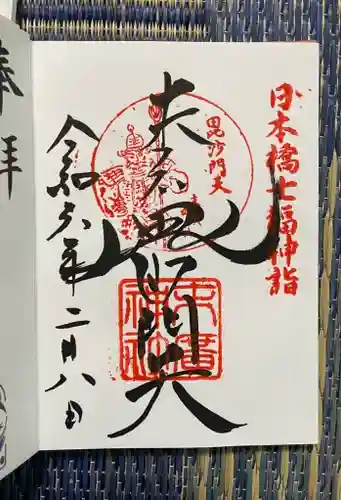 日本橋七福神詣
毘沙門天
末廣神社
毘沙門天
令和六年二月八日
奉拝